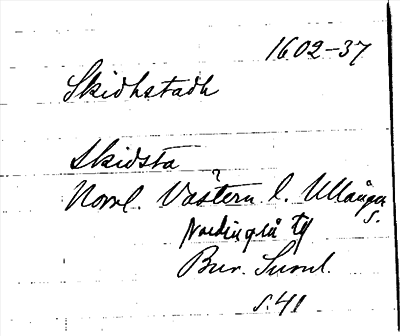 1602-37
Skidhstadh
Skidsta
Norrl. Västern l. Ullånger
s.
Nordingrå tg
Bur. Suml.
s. 41